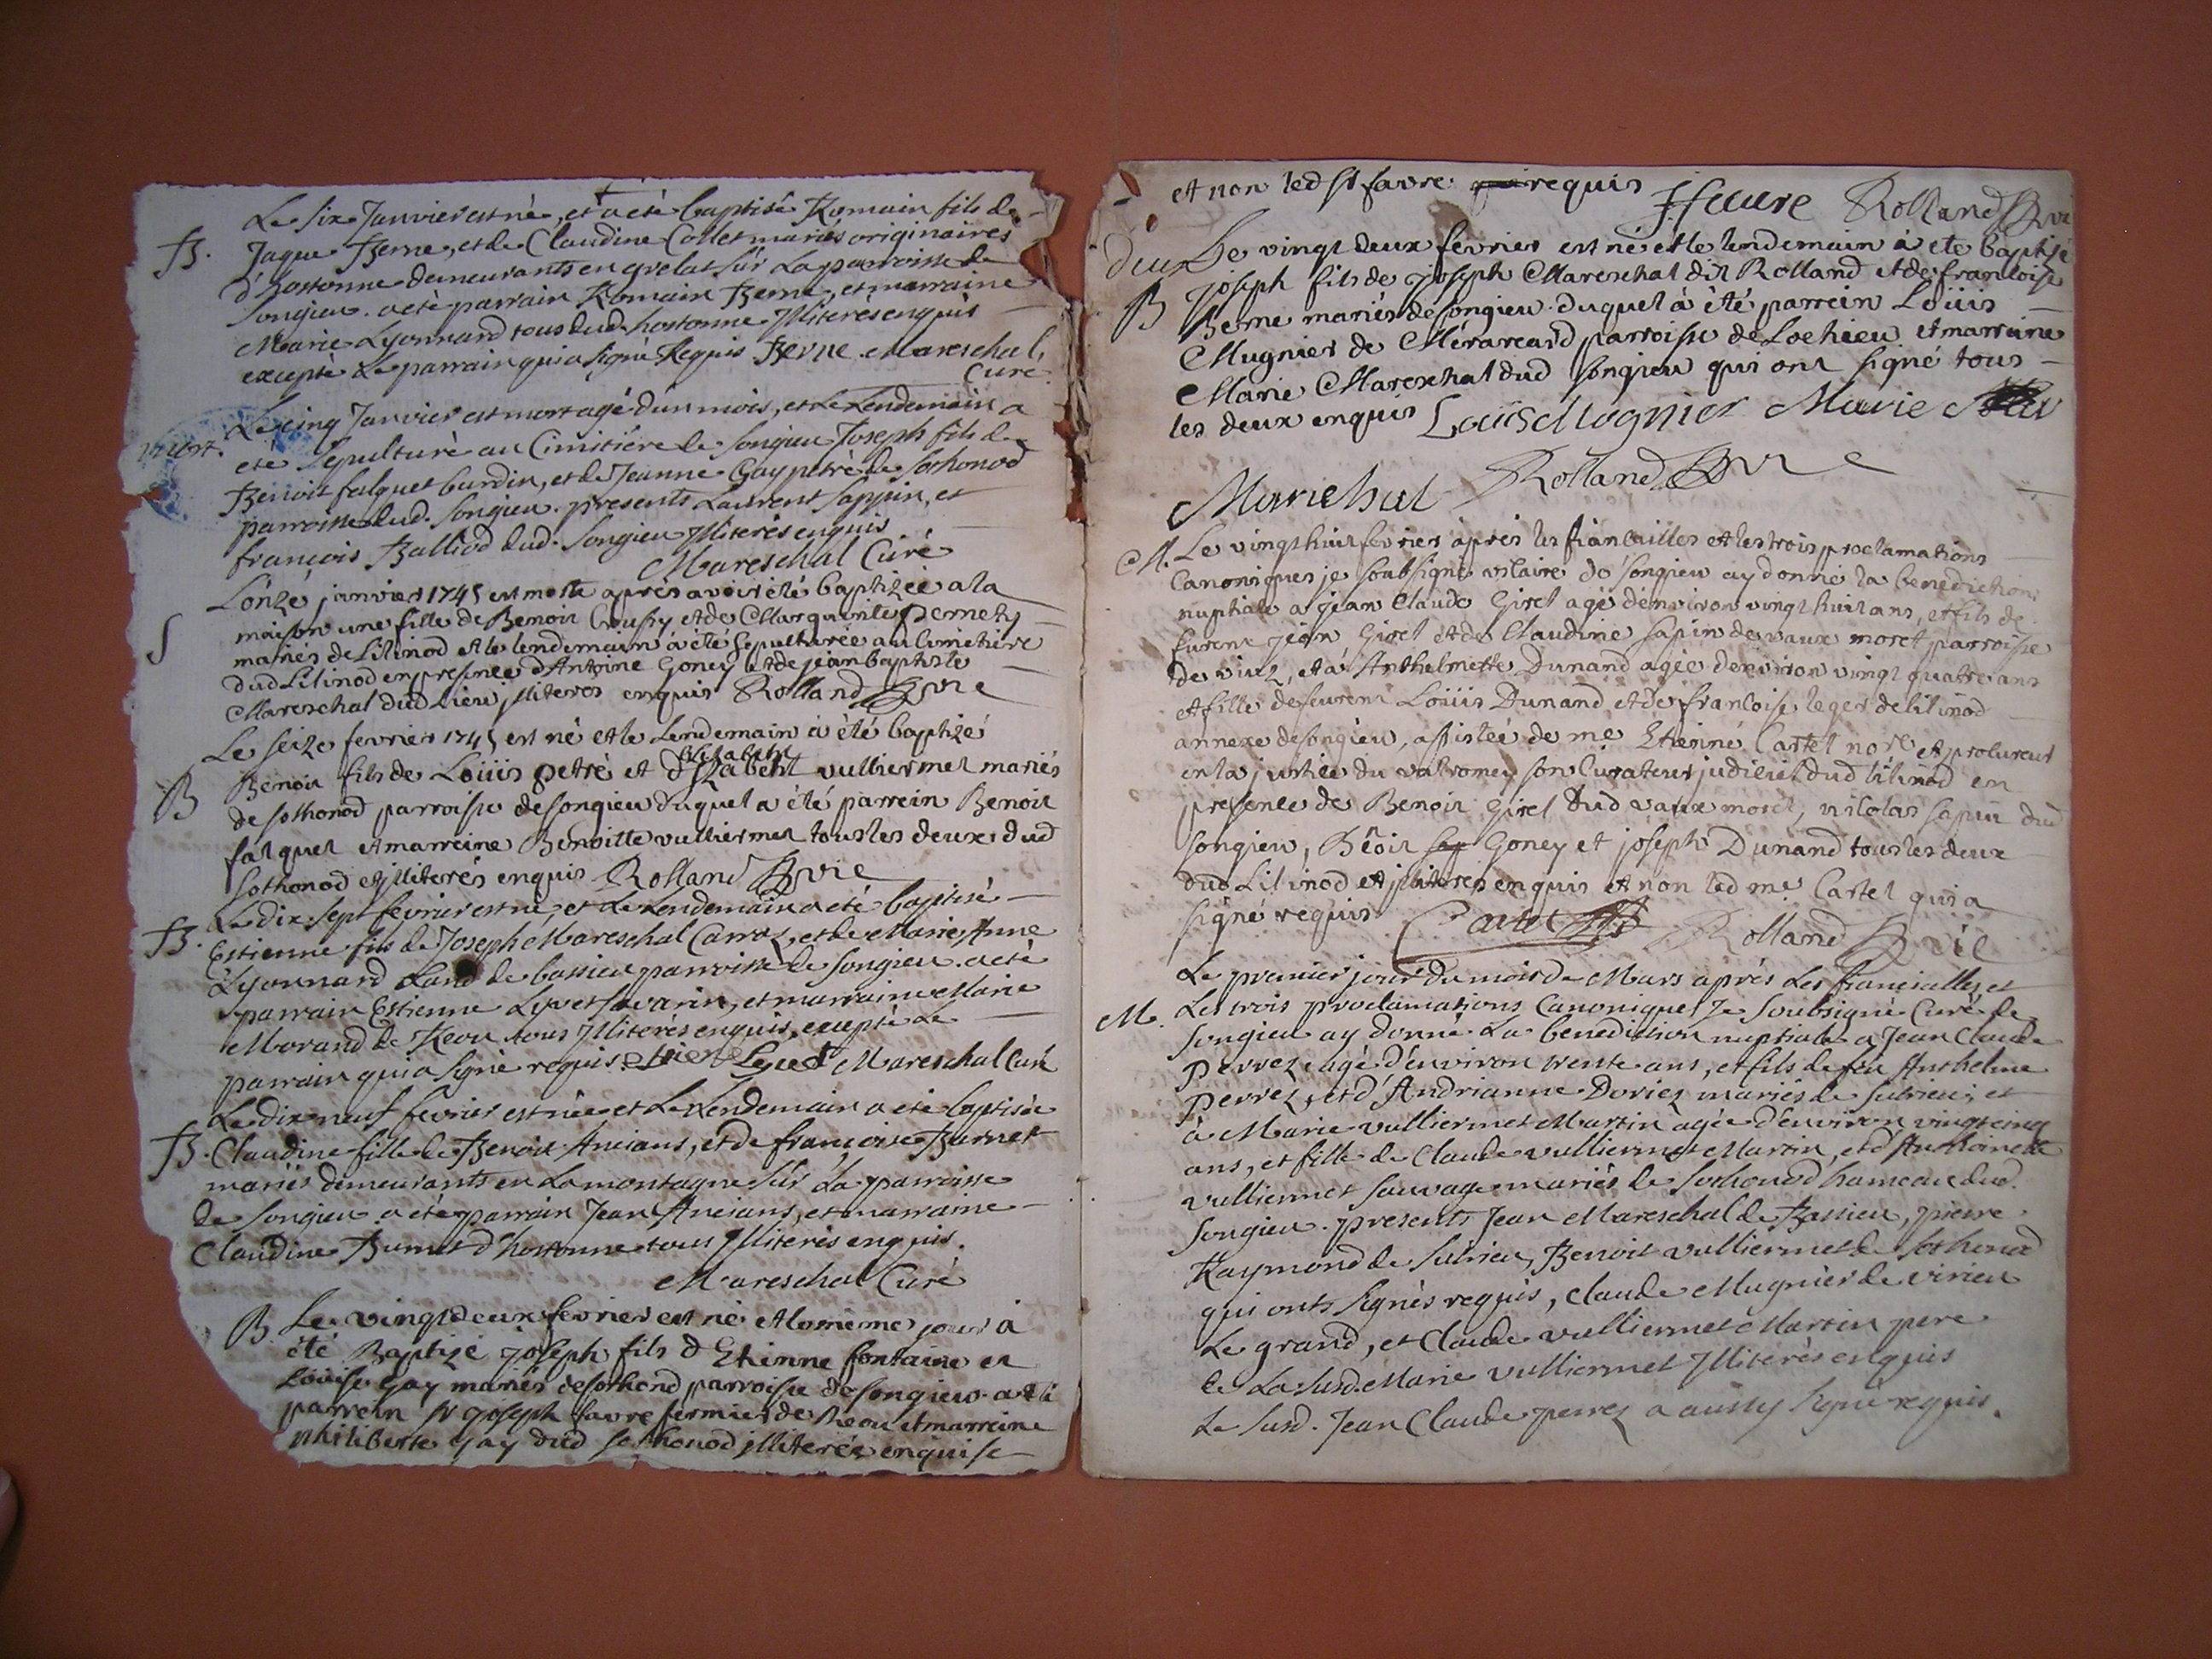 Le six Janvier est né, et a eté baptisé Romain fils de
B. Jaque Berne, et de Claudine Collet mariés originaires
d'hostonne demeurants en grelat sur la parroisse de
Songieu. a eté parrain Romain Berne, et marraine
Marie Lyonnard tous dud. hostonne Illiterés enquis
excepté le parrain qui a signé Requis Berne Mareschal
Curé
Le cinq Janvier est mort agé d'un mois, et le Lendemain a
mort. eté Sepulturé au Cimitiére de Songieu Joseph fils de
Benoit falquet burdin, et de Jeanne Gay petré de Sothonod
parroisse dud. Songieu. presents Laurent Sappin, et
françois Balliod dud. Songieu Illiterés enquis
Mareschal Curé
L'onze janvier 1745 est morte après avoir été baptizée a la
S maison une fille de Benoit Croufy et de Marguerite Pernety
mariés de Lilinod et le lendemain a été sepulturée au Cimetiere
dud Lilinod en presence d'Antoine Goney et de jean baptiste
Mareschal dud Lieu jlliteres enquis Rolland vic
Le seize fevrier 1745 est né et le Lendemain à été baptizé
Elizabeth
B Benoit fils de Loüis petré et d'Izabeht vulliermet mariés
de sothonod parroisse de songieu duquel a été parrein Benoit
falquet et marreine Benoitte vulliermet tous les deux dud
Sothonod et jlliterés enquis Rolland vic
Le dix sept fevrier est né, et le Lendemain a eté baptisé
B. Estienne fils de Joseph Mareschal Carroz, et de Marie Anne
Lyonnard Land de bassieu parroisse de Songieu. a eté
parrain Estienne Lyvet Savarin, et marraine Marie
Morand de Reou tous Illiterés enquis, excepté le
parrain qui a signé requis. etiene Lyvet Mareschal Curé
Le dix neuf fevrier est née et le Lendemain a eté baptisée
B. Claudine fille de Benoit Ancians, et de françoise Burnet
mariés demeurants en la montagne sur la parroisse
de Songieu a eté parrain Jean Ancians, et marraine
Claudine Burnet d'hostonne tous Illiterés enquis.
Mareschal Curé
B. Le vingt deux fevrier est né et le même jour à
été Baptizé joseph fils d'Etienne fontaine et
Loüise Gay mariés de sothonod parroisse de songieu. a été
parrein sr joseph favre fermier de Reou et marreine
philiberte Gay dud sothonod jlliterée enquise
et non led sr favre requis ffavre Rolland vic
deux Le vingt deux fevrier est né et le lendemain à eté baptisé
joseph fils de joseph Mareschal dit Rolland et de francoise
B Berne mariés de songieu duquel à été parrein Loüis
Mugnier de Méraréard parroisse de Lochieu et marreine
Marie Mareschal dud songieu qui ont signé tous
les deux enquis Loüis Mognier Marie Mar
Marichal Rolland vic
M. Le vingt huit fevrier après les fiancailles et les trois proclamations
Canoniques je soubsigné vicaire de songieu ay donné la benediction
nuptiale a jean Claude Girel agé denviron vingt huit ans, et fils de
furent jean Girel et de Claudine sapin de vaux moret parroisse
de viuz, et à Anthelmette Dunand agée denviron vingt quatre ans
et fille de feurent Loüis Dunand et de francoise leger de lilinod
annexe de songieu, assistée de me Etienne Cartel nore et procureur
en la justice du valromey son Curateur judiciel dud lilinod en
presence de Benoit Girel dud vaux moret, nicolas sapin dud
songieu, Bêoit sap Goney et joseph Dunand tous les deux
dud Lilinod et jlliteres enquis et non led me Cartel qui a
signé requis Cartel Rolland vic
Le premier jour du mois de Mars aprés Les fiancialles et
M. Les trois proclamations Canoniques Je Soubsigné Curé de
Songieu ay donné La benediction nuptiale a Jean Claude
Perrez agé d'environ trente ans, et fils de feu Anthelme
Perrez, et d'Andrianne Doriez mariés de Sutrieu, et
à Marie vulliermet Martin agée d'environ vingt cinq
ans, et fille de Claude vulliermet Martin, et d'Anthoinette
vulliermet sauvage mariés de Sothonod hameau dud.
Songieu. presents Jean Mareschal de Bassieu, pierre
Raymond de Sutrieu, Benoit vulliermet de Sothonod
qui onts signés requis, Claude Mugnier de virieu
Le grand, et Claude vulliermet Martin pere
de La susd. Marie vulliermet Illiterés enquis
Le susd. Jean Claude perrez a aussy signé requis.